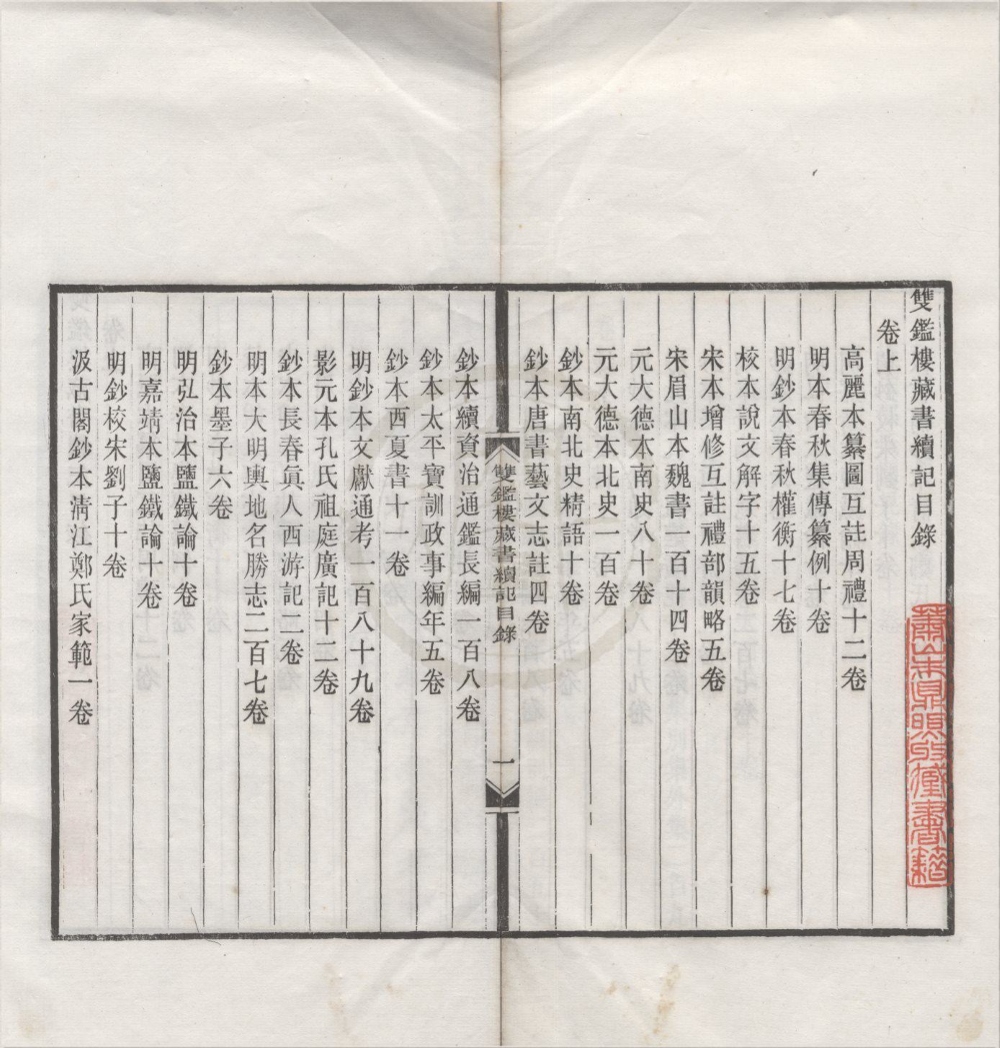 雙鑑樓藏書續記目錄
卷上
高麗本纂圖互註周禮十二卷
明本春秋集傳纂例十卷
明鈔本春秋權衡十七卷
校本說文解字十五卷
宋本增修互註禮部韻略五卷
宋眉山本魏書一百十四卷
元大德本南史八十卷
元大德本北史一百卷
鈔本南北史精語十卷
鈔本唐書藝文志註四卷
雙鑑樓藏書續記目錄
一
鈔本續資治通鑑長編一百八卷
鈔本太平寶訓政事編年五卷
鈔本西夏書十一卷
明鈔本文獻通考一百八十九卷
影元本孔氏祖庭廣記十二卷
鈔本長春眞人西游記二卷
明本大明輿地名勝志二百七卷
鈔本墨子六卷
明弘治本鹽鐵論十卷
明嘉靖本鹽鐵論十卷
明鈔校宋劉子十卷
汲古閣鈔本淸江鄭氏家範一卷
蕭山朱鼎煦收藏書籍